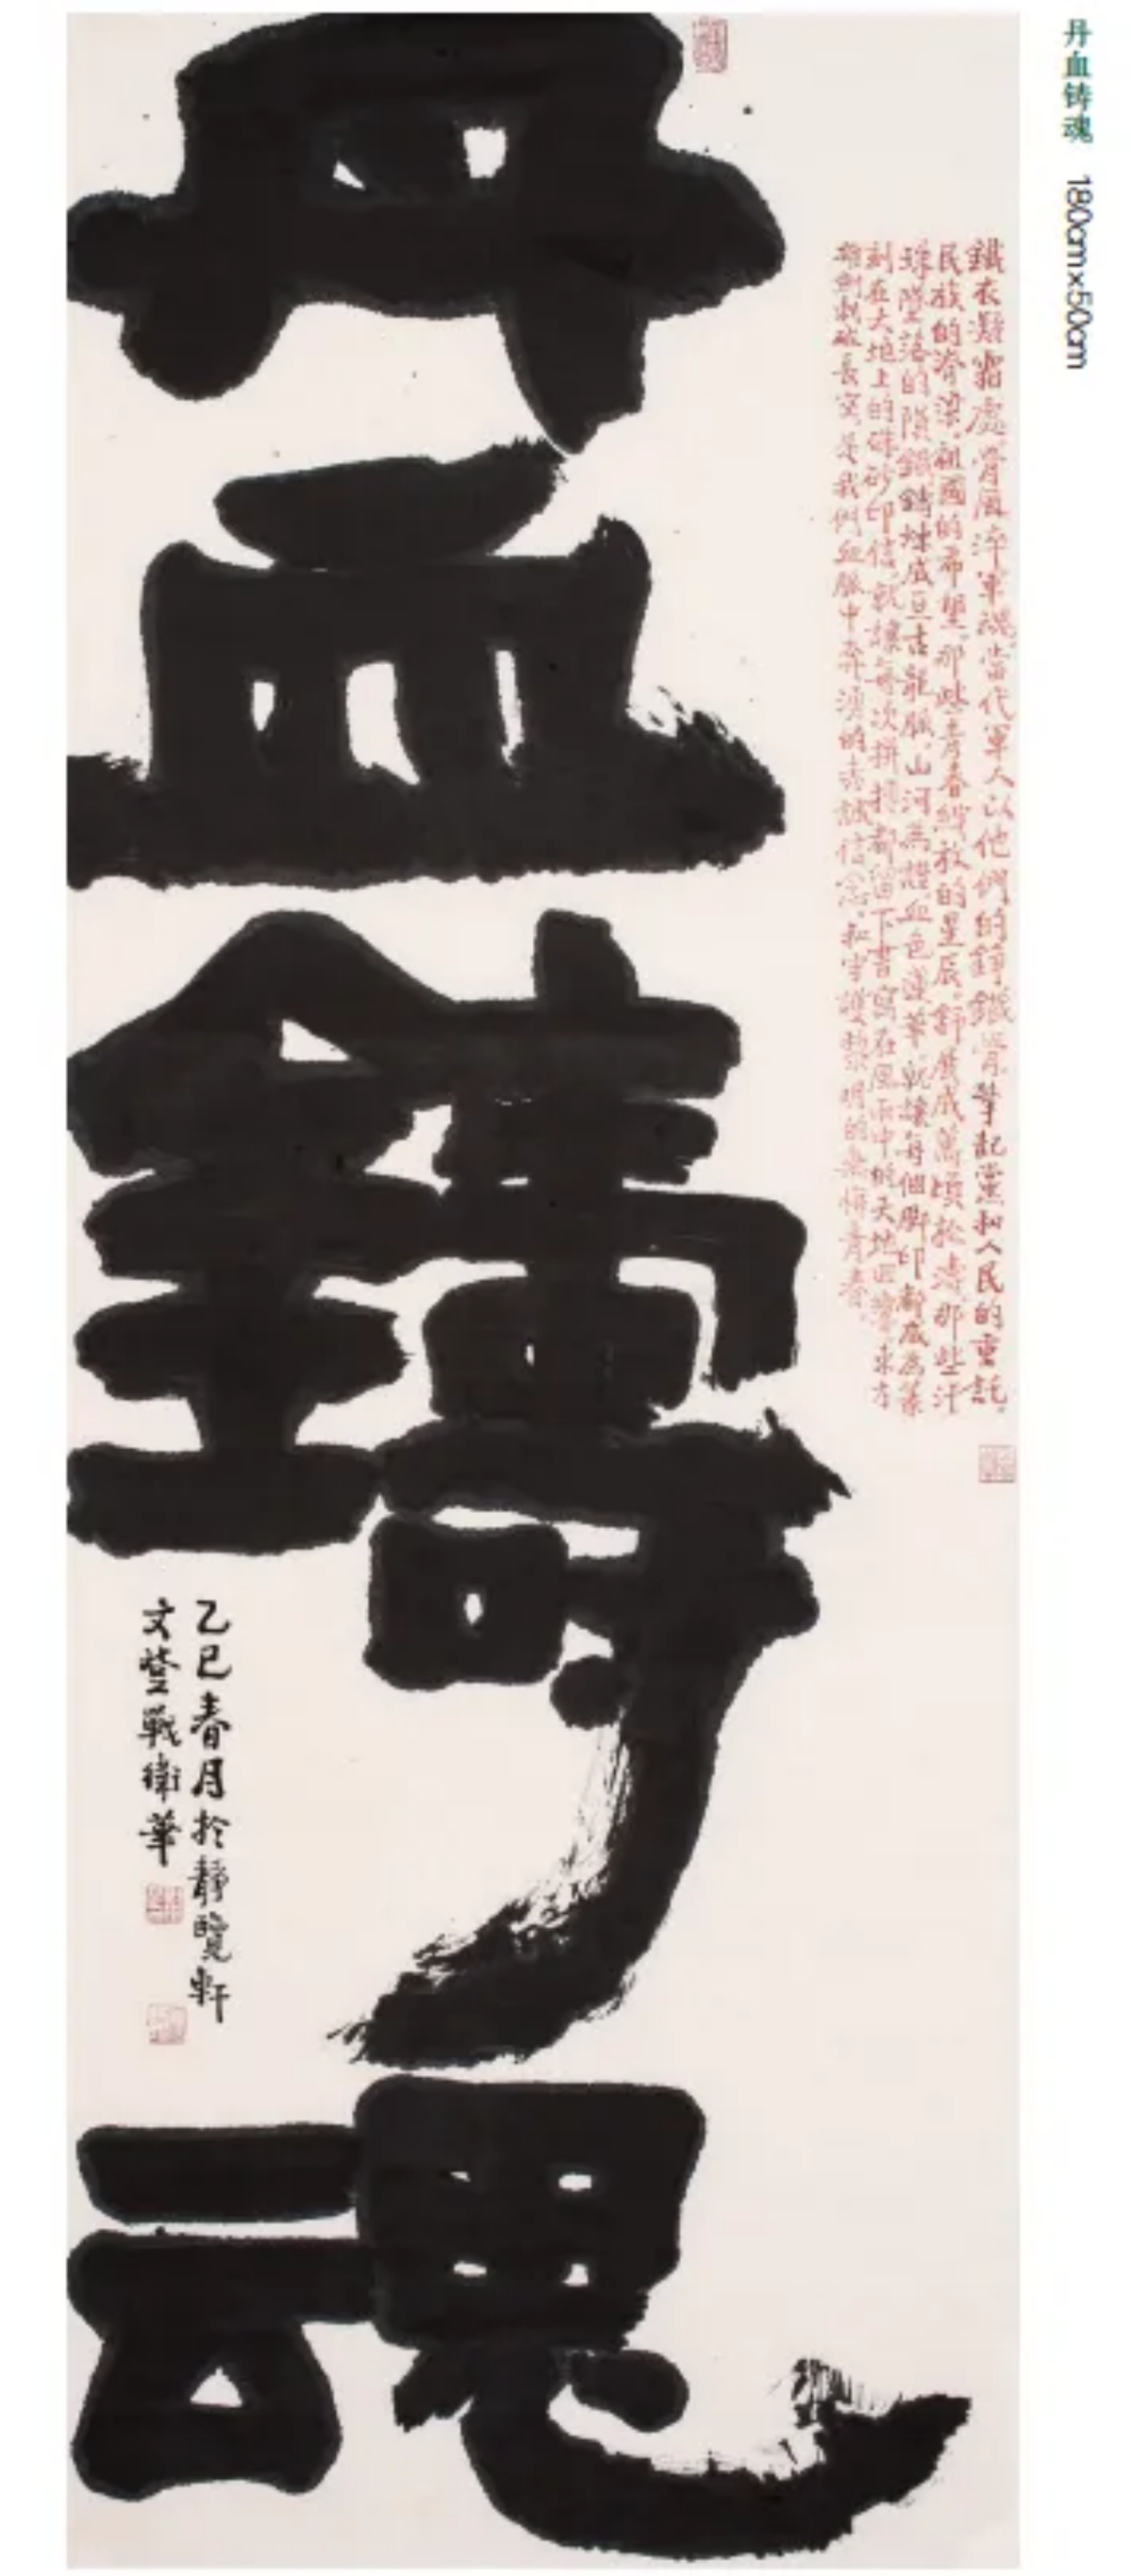 丹血铸魂 180cm×50cm
丹血鑄魂
鐵衣凝霜處骨風淬軍魂當代軍人以他們的錚鐵骨擎起黨和人民的重託
民族的脊梁祖國的希望那些青春綻放的星辰舒展成萬頃松濤那些汗
珠墜落的隕鐵鑄煉成亘古龍脈山河為證血色進華就讓每個腳印都成為篆
刻在大地上的硃砂印信就讓每次拼搏都留下書寫在風雨中的天地回響東方
雄劍刺破長空是我們血脈中奔湧的赤誠信念和守護黎明的無悔青春
乙巳春月於靜覽軒
文登戰衛華